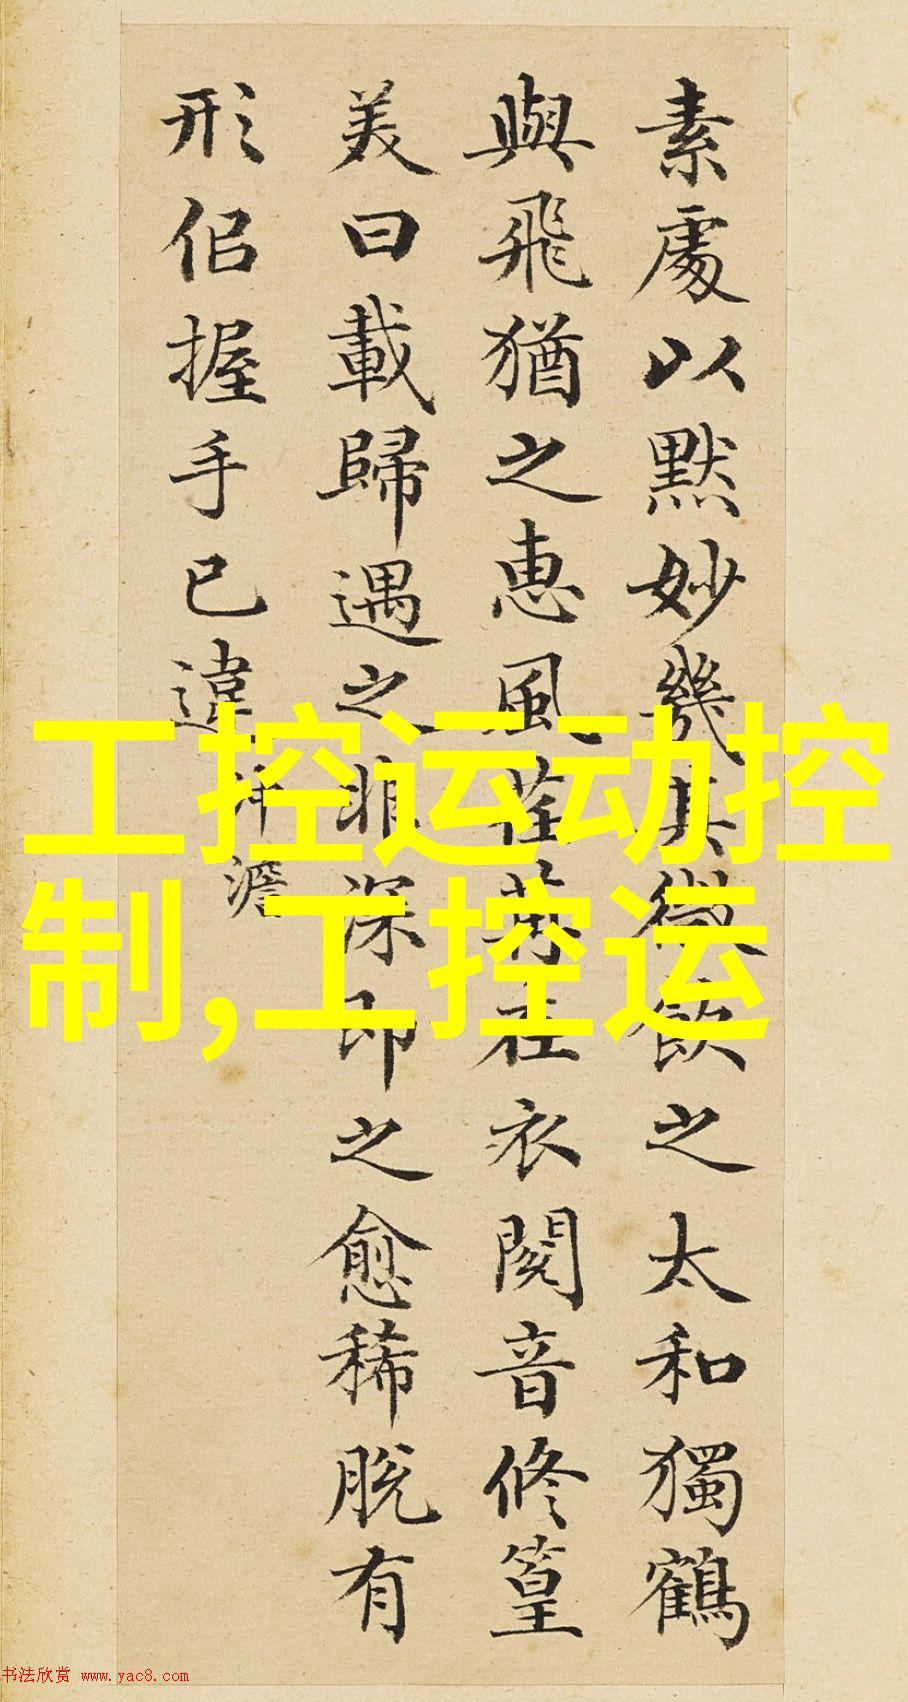 素處以默妙幾其微飲之太和獨鶴
與飛猶之惠風荏苒在衣閱音修篁
美曰載歸遇之非深即之愈稀脫有
形侣握手已違 沖澹
工控运动控
制,工控运
书法欣赏 www.yac8.com